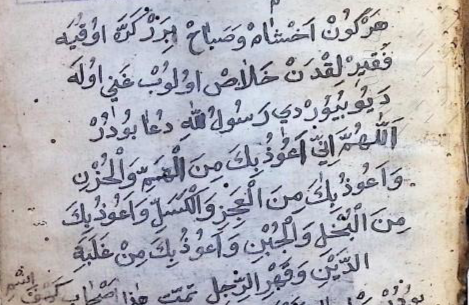 هَرْ كُونْ اَخْشَامْ وَصَبَاحْ بِرَرْ كَرَّه اوُقُيَه
فَقِيرْلِقْدَنْ خَلَاصْ اوُلُوبْ غَنِي اوُلَه
دِيُو بُيُورْدِي رَسُولُ اللهِ دُعَا بُودُرْ
اَللّٰهُمَّ اِنِّي اَعُوذُ بِكَ مِنَ الْهَمِّ وَالْحُزْنِ
وَاَعُوذُ بِكَ مِنَ الْعَجْزِ وَالْكَسَلِ وَاَعُوذُ بِكَ
مِنَ الْبُخْلِ وَالْجُبْنِ وَاَعُوذُ بِكَ مِنْ غَلَبَةِ
الدَّيْنِ وَقَهْرِ الرَّجُلِ تَمَّتْ هٰذَا اَصْحَابِ كَهْفْ